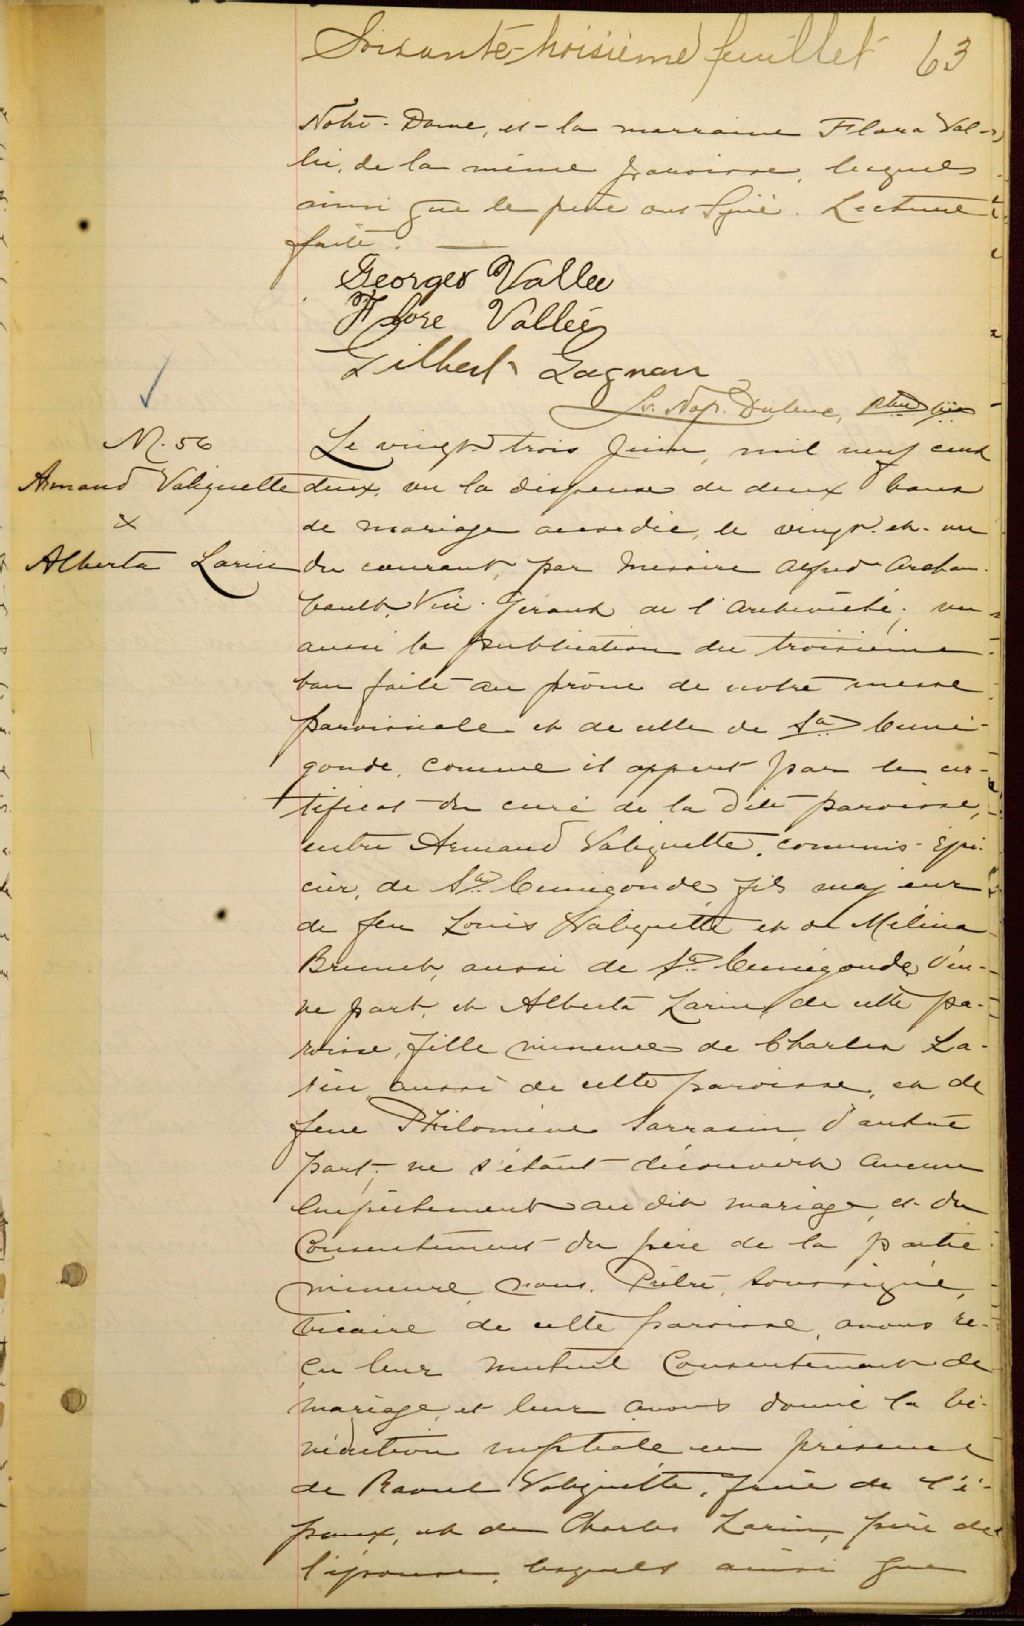 Soixante-troisième feuillet 63
Notre-Dame, et la marraine Flora Val-
lée, de la même paroisse, lesquels
ainsi que le père ont signé. Lecture
faite.
Georges Vallee
Flore Vallée
Gilbert Gagnon
Ls. Nap. Dubuc, ptre vic
M. 56
Armand Valiquette
&
Alberta Larin
Le vingt-trois Juin, mil neuf cent
deux, vu la dispense de deux bans
de mariage accordée, le vingt-et-un
du courant, par Messire Alfred Archam-
bault, Vic. Général de l'Archevêché; vu
aussi la publication du troisième
ban faite au prône de notre messe
paroissiale et de celle de Ste Cuné-
gonde, comme il appert par le cer-
tificat du curé de la dite paroisse,
entre Armand Valiquette, commis-épi-
cier, de Ste Cunégonde, fils majeur
de feu Louis Valiquette et de Mélina
Brunet, aussi de Ste Cunégonde, d'u-
ne part, et Alberta Larin, de cette pa-
roisse, fille mineure de Charles La-
rin aussi de cette paroisse, et de
feue Philomène Sarrasin, d'autre
part; ne s'étant découvert aucun
empêchement au dit mariage, et du
Consentement du père de la partie
mineure, nous, Prêtre, soussigné,
vicaire de cette paroisse, avons re-
çu leur mutuel Consentement de
mariage, et leur avons donné la bé-
nédiction nuptiale en présence
de Raoul Valiquette, frère de l'é-
poux, et de Charles Larin, père de
l'épouse, lesquels ainsi que